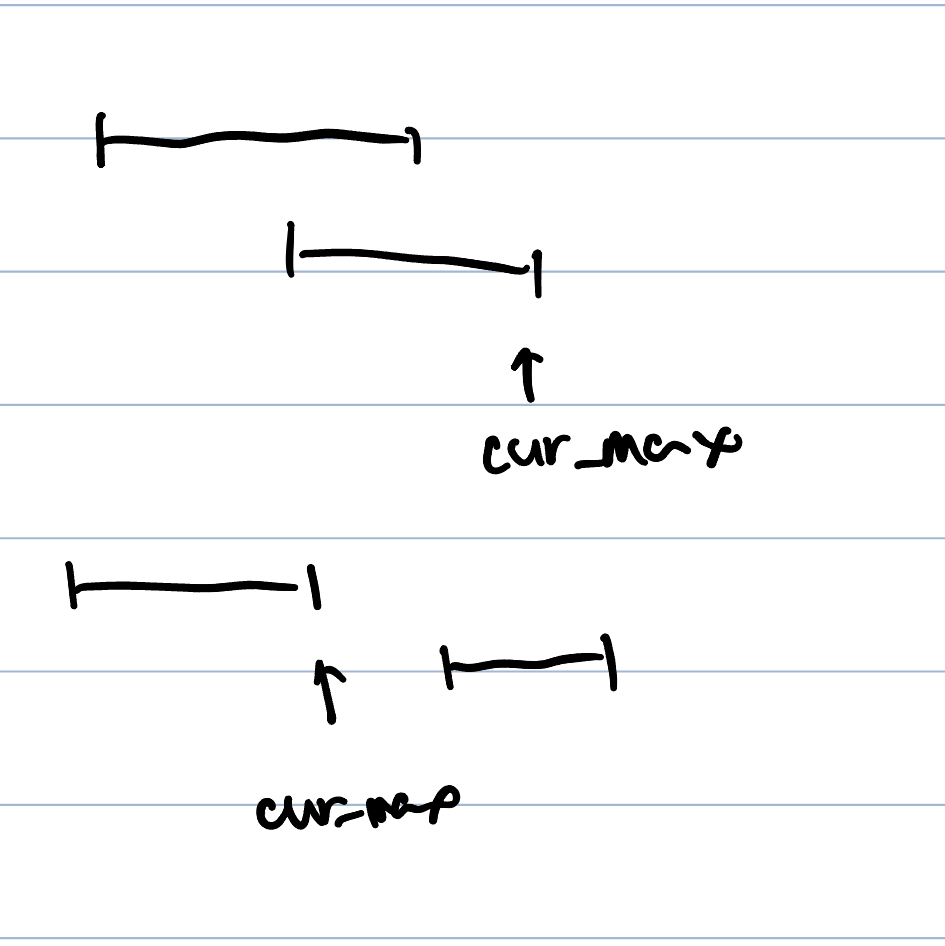 cur_max
cur_max